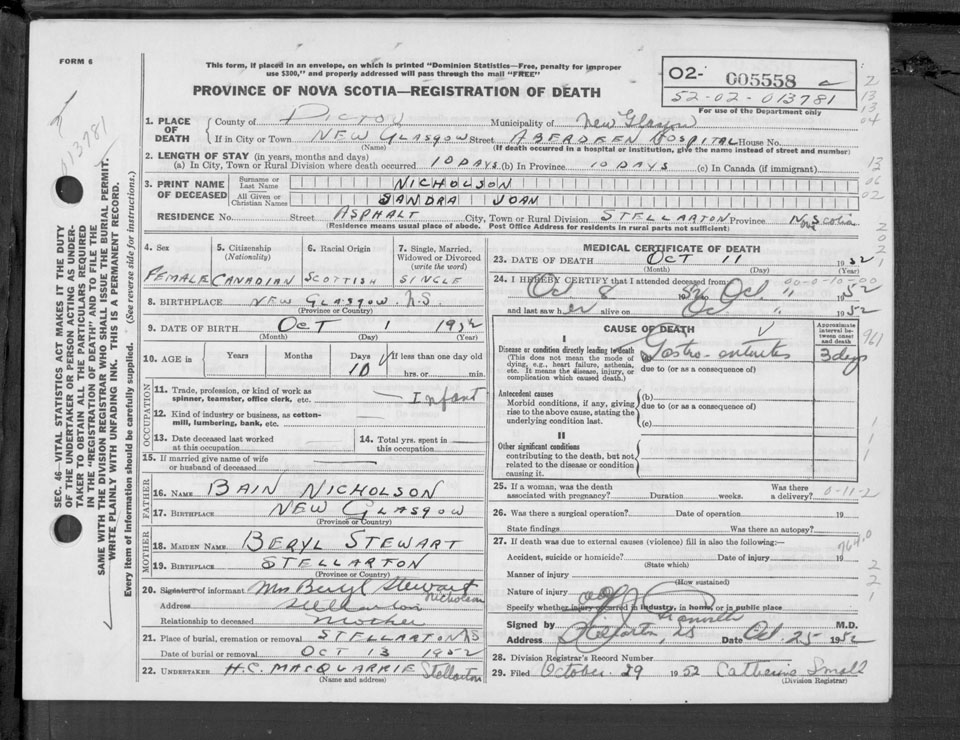 FORM 6
This form, if placed in an envelope, on which is printed "Dominion Statistics—Free, penalty for improper
use $300," and properly addressed will pass through the mail "FREE"
PROVINCE OF NOVA SCOTIA—REGISTRATION OF DEATH
02- 005558
52-02-013781
For use of the Department only
13781
SEC. 46—VITAL STATISTICS ACT MAKES IT THE DUTY
OF THE UNDERTAKER OR PERSON ACTING AS UNDER-
TAKER TO OBTAIN ALL THE PARTICULARS REQUIRED
IN THE "REGISTRATION OF DEATH" AND TO FILE THE
SAME WITH THE DIVISION REGISTRAR WHO SHALL ISSUE THE BURIAL PERMIT.
WRITE PLAINLY WITH UNFADING INK. THIS IS A PERMANENT RECORD.
Every item of Information should be carefully supplied. (See reverse side for instructions.)
1. PLACE OF DEATH County of PICTOU Municipality of New Glasgow
If in City or Town NEW GLASGOW Street ABERDEEN HOSPITAL House No.
(Name) (If death occurred in a hospital or institution, give the name instead of street and number)
2. LENGTH OF STAY (in years, months and days)
(a) In City, Town or Rural Division where death occurred 10 DAYS (b) In Province 10 DAYS (c) In Canada (if immigrant)
3. PRINT NAME OF DECEASED Surname or Last Name NICHOLSON
All Given or Christian Names SANDRA JOAN
RESIDENCE No. Street ASPHALT City, Town or Rural Division STELLARTON Province Nova Scotia
(Residence means usual place of abode. Post Office Address for residents in rural parts not sufficient)
4. Sex 5. Citizenship (Nationality) 6. Racial Origin 7. Single, Married, Widowed or Divorced (write the word)
FEMALE CANADIAN SCOTTISH SINGLE
8. BIRTHPLACE NEW GLASGOW N.S.
(Province or Country)
9. DATE OF BIRTH OCT 1 1952
(Month) (Day) (Year)
10. AGE in Years Months Days If less than one day old
10 hrs. or min.
OCCUPATION
11. Trade, profession, or kind of work as
spinner, teamster, office clerk, etc. Infant
12. Kind of industry or business, as cotton-
mill, lumbering, bank, etc.
13. Date deceased last worked at this occupation 14. Total yrs. spent in this occupation
15. If married give name of wife
or husband of deceased
FATHER
16. NAME BAIN NICHOLSON
17. BIRTHPLACE NEW GLASGOW
(Province or Country)
MOTHER
18. MAIDEN NAME BERYL STEWART
19. BIRTHPLACE STELLARTON
(Province or Country)
20. Signature of informant Mrs Beryl Stewart Nicholson
Address Stellarton
Relationship to deceased Mother
21. Place of burial, cremation or removal STELLARTON NS
Date of burial or removal OCT 13 1952
22. UNDERTAKER H.C. MACQUARRIE Stellarton
(Name and address)
MEDICAL CERTIFICATE OF DEATH
23. DATE OF DEATH OCT 11 1952
(Month) (Day) (Year)
24. I HEREBY CERTIFY that I attended deceased from
Oct 8 1952 Oct 11 1952
and last saw her alive on Oc " 1952
CAUSE OF DEATH
Approximate interval between onset and death
I
Disease or condition directly leading to death
(This does not mean the mode of dying, e.g., heart failure, asthenia, etc. It means the disease, injury, or complication which caused death.)
(a) Gastro-enteritis 3 days
due to (or as a consequence of)
Antecedent causes
Morbid conditions, if any, giving rise to the above cause, stating the underlying condition last.
(b)
due to (or as a consequence of)
(c)
II
Other significant conditions
contributing to the death, but not related to the disease or condition causing it.
25. If a woman, was the death associated with pregnancy? Duration weeks. Was there a delivery? 0-11-2
26. Was there a surgical operation? Date of operation 19
State findings Was there an autopsy?
27. If death was due to external causes (violence) fill in also the following:—
Accident, suicide or homicide? Date of injury 19
(State which)
Manner of injury
(How sustained)
Nature of injury
Specify whether injury occurred in industry, in home, or in public place
Signed by M.D.
Address Stellarton, NS Date Oct 25 1952
28. Division Registrar's Record Number
29. Filed October 29 1952 Catherine Small
(Division Registrar)